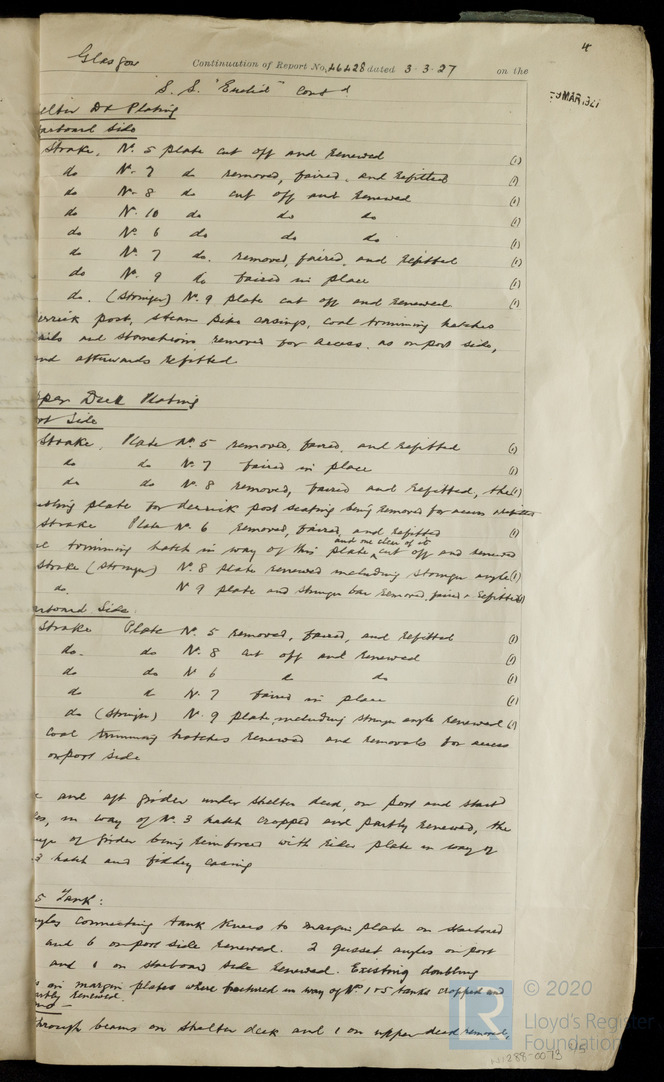 4
Glasgow Continuation of Report No. 46428 dated 3-3-27 on the
S.S. "Euclid" contd
9 MAR 1927
elter Dk Plating
arboard side
Strake. No. 5 plate cut off and renewed (1)
do No. 7 do removed, faired, and refitted (1)
do No. 8 do cut off and renewed (1)
do No. 10 do do do (1)
do No. 6 do do do (1)
do No. 7 do. removed, faired, and refitted (1)
do No. 9 do faired in place (1)
do. (Stringer) No. 9 plate cut off and renewed (1)
errick post, steam pipe casings, coal trimming hatches
ails and stanchions removed for access, as on port side,
and afterwards refitted
pper Deck Plating
ort Side
Strake. Plate No. 5 removed, faired, and refitted (1)
do do No. 7 faired in place (1)
do do No. 8 removed, faired and refitted, the (1)
ubling plate for derrick post seating being removed for access & refitted
Strake Plate No. 6 removed, faired, and refitted (1)
and one clear of it
trimming hatch in way of this plate cut off and renewed
Stroke (Stringer) No. 8 plate renewed including stringer angle (1)
do. No 9 plate and stringer bar removed, faired & refitted (1)
arboard Side.
Strake Plate No. 5 removed, faired, and refitted (1)
do. do No. 8 cut off and renewed (1)
do do No 6 do do (1)
do do No. 7 faired in place (1)
do (Stringer) No. 9 plate, including stringer angle renewed (1)
Coal trimming hatches renewed and removals for access
on port side
and aft girder under shelter deck, on port and starbd
es, in way of No. 3 hatch cropped and partly renewed, the
of girder being reinforced with rider plate in way of
3 hatch and fiddley casing
5 Tank:
ngles connecting tank knees to margin plate on starboard
and 6 on port side renewed. 2 gusset angles on port
and 1 on starboard side renewed. Existing doubling
on margin plates where fractured in way of No. 1 & 5 tanks cropped and
artly renewed.
through beams on shelter deck and 1 on upper deck removed,
© 2020
LR
Lloyd's Register
Foundation
W1288-0073 4/5